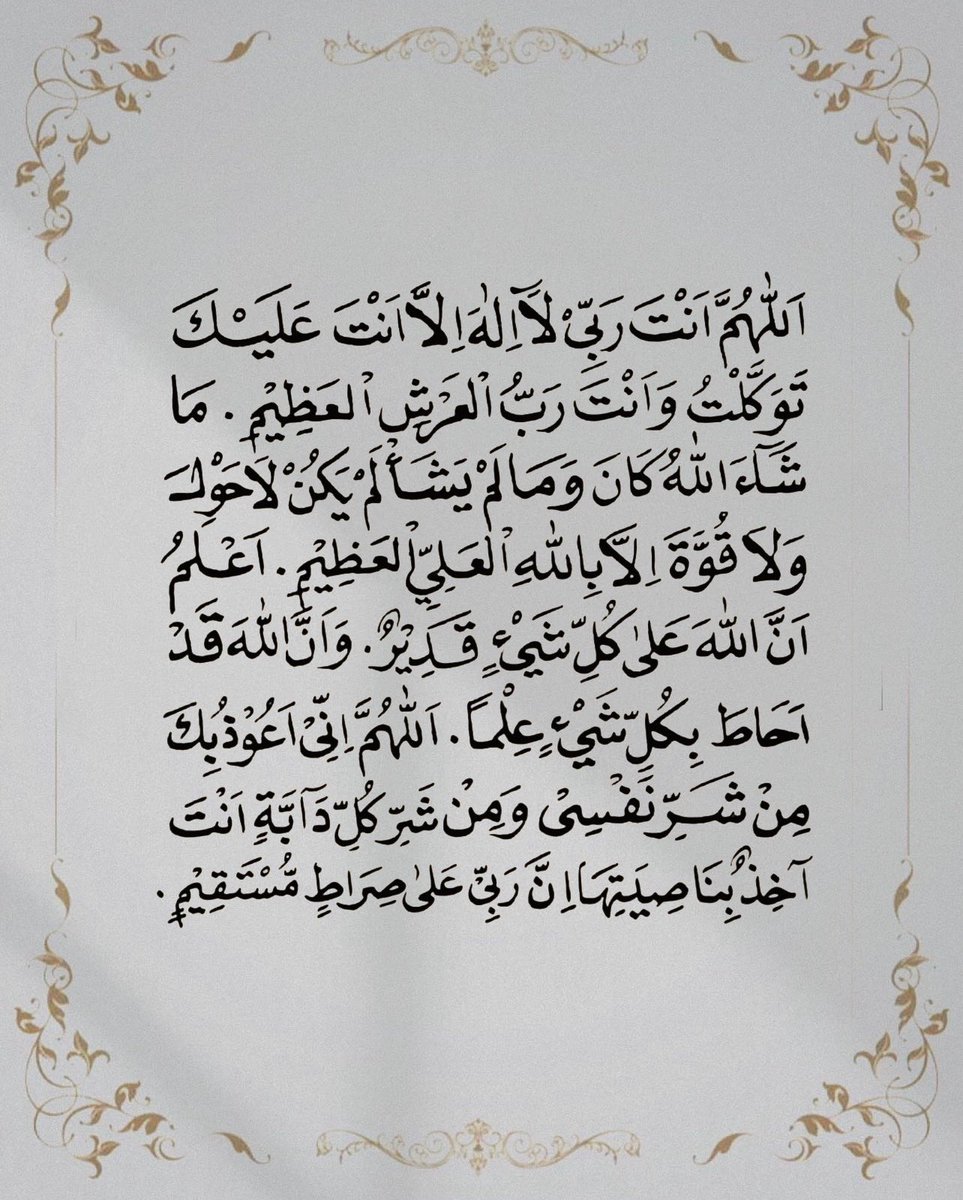 اَللّٰهُمَّ اَنْتَ رَبِّيْ لَآ اِلٰهَ اِلَّا اَنْتَ عَلَيْكَ
تَوَكَّلْتُ وَاَنْتَ رَبُّ الْعَرْشِ الْعَظِيْمِ. مَا
شَآءَ اللّٰهُ كَانَ وَمَا لَمْ يَشَأْ لَمْ يَكُنْ لَا حَوْلَ
وَلَا قُوَّةَ اِلَّا بِاللّٰهِ الْعَلِيِّ الْعَظِيْمِ. اَعْلَمُ
اَنَّ اللّٰهَ عَلٰى كُلِّ شَيْءٍ قَدِيْرٌ. وَاَنَّ اللّٰهَ قَدْ
اَحَاطَ بِكُلِّ شَيْءٍ عِلْمًا. اَللّٰهُمَّ اِنِّيْ اَعُوْذُ بِكَ
مِنْ شَرِّ نَفْسِيْ وَمِنْ شَرِّ كُلِّ دَآبَّةٍ اَنْتَ
آخِذٌ بِنَاصِيَتِهَا اِنَّ رَبِّيْ عَلٰى صِرَاطٍ مُّسْتَقِيْمٍ.